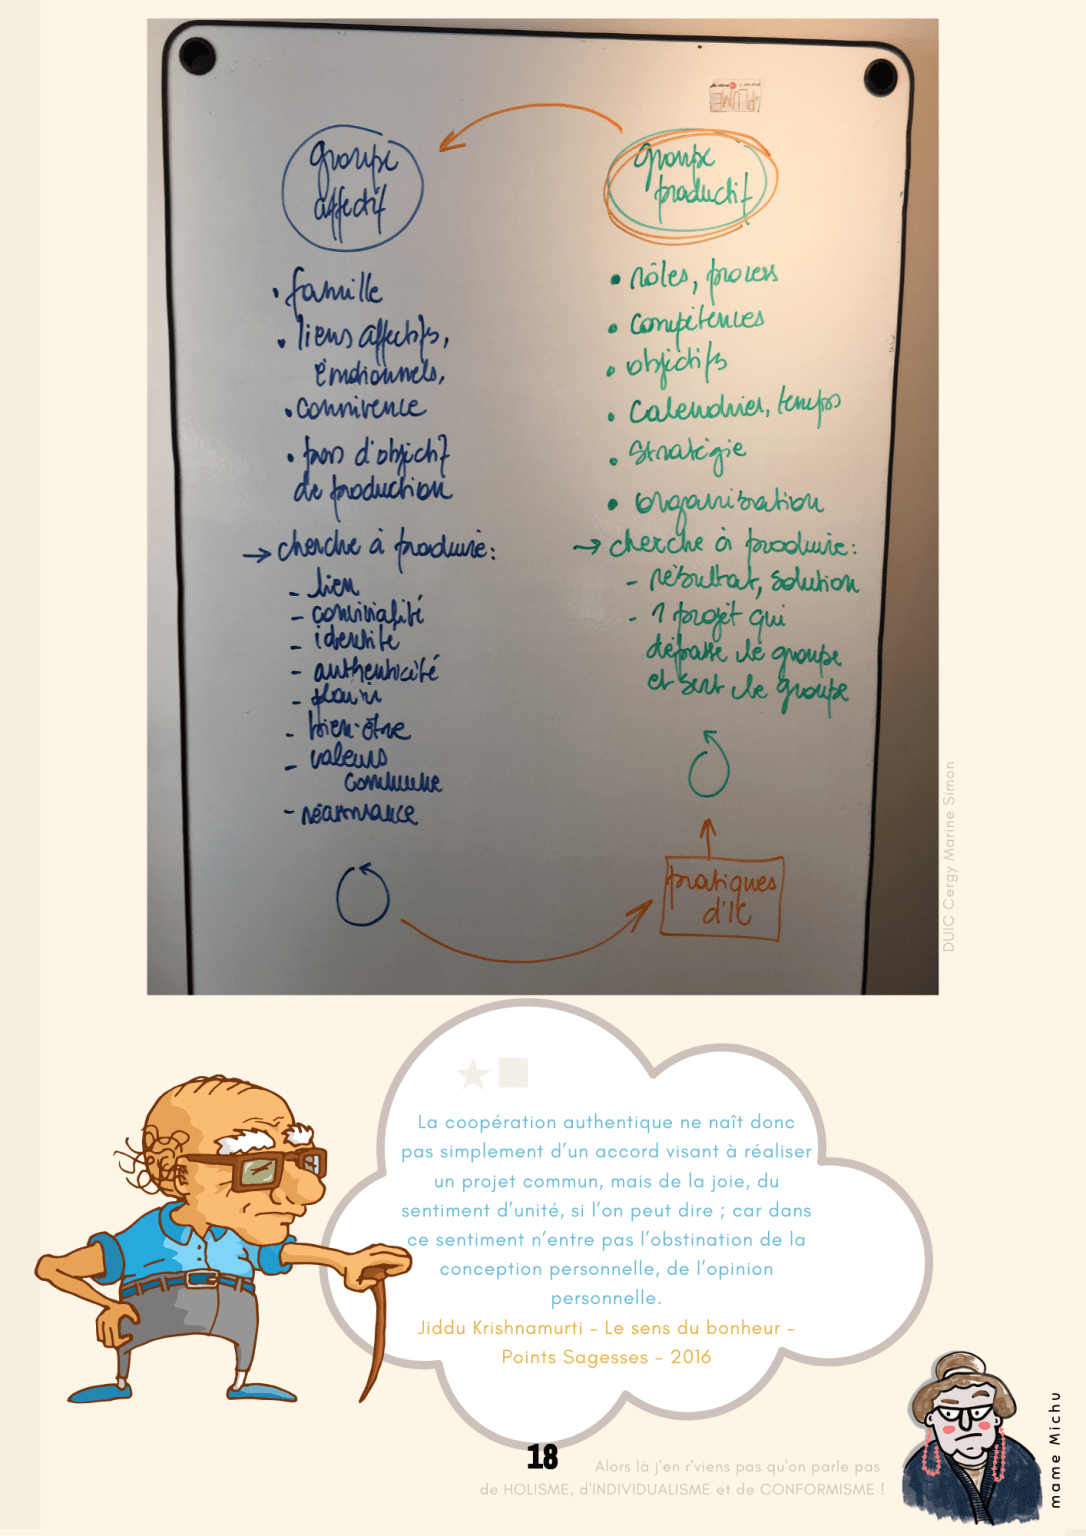 groupe
affectif
• famille
• liens affectifs,
émotionnels,
• connivence
• pas d'objectif
de production
→ cherche à produire :
- lien
- convivialité
- identité
- authenticité
- plaisir
- bien-être
- valeurs
commune
- réassurance
groupe
productif
• rôles, process
• compétences
• objectifs
• calendrier, temps
• stratégie
• organisation
→ cherche à produire :
- résultat, solution
- 1 projet qui
dépasse le groupe
et sert le groupe
pratiques
d'IC
DUIC Cergy Marine Simon
La coopération authentique ne naît donc
pas simplement d'un accord visant à réaliser
un projet commun, mais de la joie, du
sentiment d'unité, si l'on peut dire ; car dans
ce sentiment n'entre pas l'obstination de la
conception personnelle, de l'opinion
personnelle.
Jiddu Krishnamurti - Le sens du bonheur -
Points Sagesses - 2016
18
Alors là j'en r'viens pas qu'on parle pas
de HOLISME, d'INDIVIDUALISME et de CONFORMISME !
mame Michu